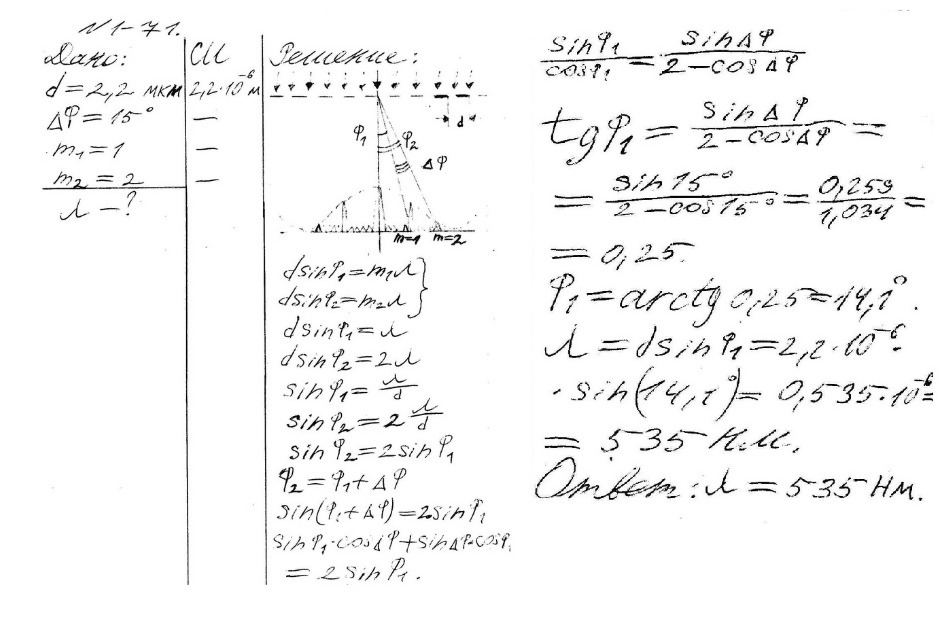 N1-71.
Дано:
d = 2,2 мкм
Δφ = 15°
m₁ = 1
m₂ = 2
λ - ?
СИ
2,2·10⁻⁶ м
—
—
—
Решение:
d
φ₁ φ₂
Δφ
m=1 m=2
dsinφ₁ = m₁λ }
dsinφ₂ = m₂λ }
dsinφ₁ = λ
dsinφ₂ = 2λ
sinφ₁ = λ/d
sinφ₂ = 2 λ/d
sinφ₂ = 2sinφ₁
φ₂ = φ₁ + Δφ
sin(φ₁ + Δφ) = 2sinφ₁
sinφ₁·cosΔφ + sinΔφ·cosφ₁
= 2sinφ₁.
sinφ₁/cosφ₁ = sinΔφ/(2 - cosΔφ)
tgφ₁ = sinΔφ/(2 - cosΔφ) =
= sin15°/(2 - cos15°) = 0,259/1,034 =
= 0,25.
φ₁ = arctg 0,25 = 14,1°.
λ = dsinφ₁ = 2,2·10⁻⁶·
· sin(14,1°) = 0,535·10⁻⁶ =
= 535 н.м.
Ответ: λ = 535 нм.